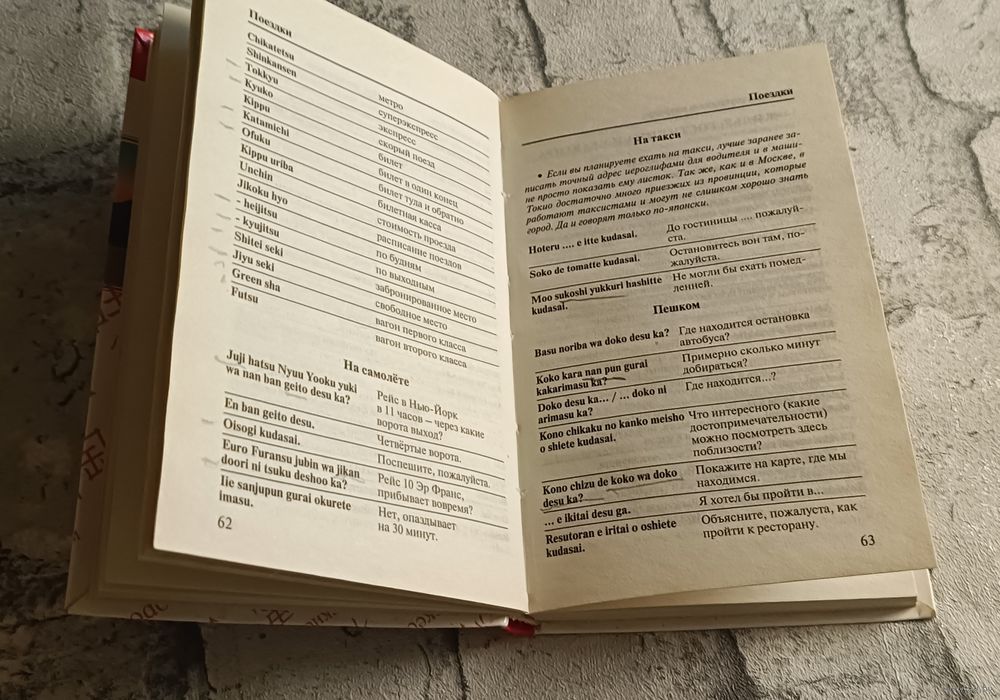 Поездки
Chikatetsu метро
Shinkansen суперэкспресс
Tokkyu экспресс
Kyuko скорый поезд
Kippu билет
Katamichi билет в один конец
Ofuku билет туда и обратно
Kippu uriba билетная касса
Unchin стоимость проезда
Jikoku hyo расписание поездов
- heijitsu по будням
- kyujitsu по выходным
Shitei seki забронированное место
Jiyu seki свободное место
Green sha вагон первого класса
Futsu вагон второго класса
На самолёте
Juji hatsu Nyuu Yooku yuki
wa nan ban geito desu ka?
Рейс в Нью-Йорк
в 11 часов – через какие
ворота выход?
En ban geito desu. Четвёртые ворота.
Oisogi kudasai. Поспешите, пожалуйста.
Euro Furansu jubin wa jikan
doori ni tsuku deshoo ka?
Рейс 10 Эр Франс,
прибывает вовремя?
Iie sanjupun gurai okurete
imasu.
Нет, опаздывает
на 30 минут.
62
Поездки
На такси
• Если вы планируете ехать на такси, лучше заранее за-
писать точный адрес иероглифами для водителя и в маши-
не просто показать ему листок. Так же, как и в Москве, в
Токио достаточно много приезжих из провинции, которые
работают таксистами и могут не слишком хорошо знать
город. Да и говорят только по-японски.
Hoteru .... e itte kudasai.
До гостиницы ...., пожалуй-
ста.
Soko de tomatte kudasai.
Остановитесь вон там, по-
жалуйста.
Moo sukoshi yukkuri hashitte
kudasai.
Не могли бы ехать помед-
ленней.
Пешком
Basu noriba wa doko desu ka?
Где находится остановка
автобуса?
Koko kara nan pun gurai
kakarimasu ka?
Примерно сколько минут
добираться?
Doko desu ka... / ... doko ni
arimasu ka?
Где находится...?
Kono chikaku no kanko meisho
o shiete kudasai.
Что интересного (какие
достопримечательности)
можно посмотреть здесь
поблизости?
Kono chizu de koko wa doko
desu ka?
Покажите на карте, где мы
находимся.
... e ikitai desu ga.
Я хотел бы пройти в...
Resutoran e iritai o oshiete
kudasai.
Объясните, пожалуста, как
пройти к ресторану.
63